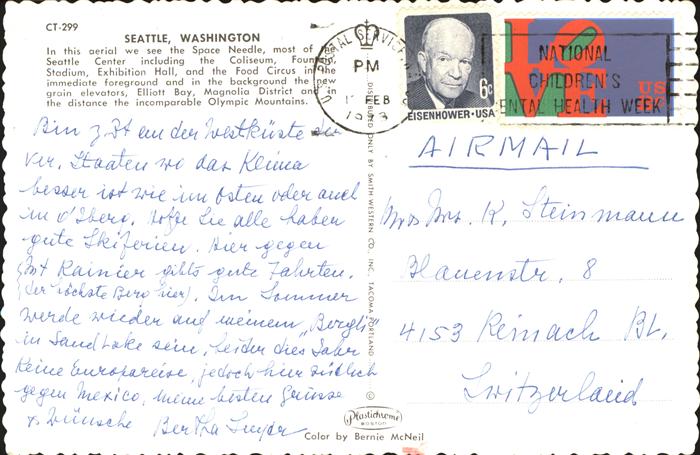 CT-299
SEATTLE, WASHINGTON
In this aerial we see the Space Needle, most of the
Seattle Center including the Coliseum, Fountain
Stadium, Exhibition Hall, and the Food Circus in the
immediate foreground and in the background the new
grain elevators, Elliott Bay, Magnolia District and in
the distance the incomparable Olympic Mountains.
Bin z.Zt an der Westküste der
Ver. Staaten wo das Klima
besser ist wie im Osten oder auch
im O'Iberg. Hoffe Sie alle haben
gute Skiferien. Hier gegen
Mt Rainier gibts gute Fahrten.
(der höchste Berg hier). Im Sommer
werde wieder auf meinem "Bergli"
in Sand Lake sein, leider dies Jahr
keine Europareise, jedoch hier südlich
gegen Mexico. Meine besten Grüsse
& Wünsche Bertha
DISTRIBUTED ONLY BY SMITH WESTERN CO. INC. TACOMA PORTLAND ©
Plastichrome
BOSTON
Color by Bernie McNeil
U.S. POSTAL SERVICE
PM
FEB
1973
6c
EISENHOWER·USA
LOVE
US
NATIONAL
CHILDREN'S
DENTAL HEALTH WEEK
AIRMAIL
Mrs. K. Steinmann
Blauenstr. 8
4153 Reinach BL.
Switzerland